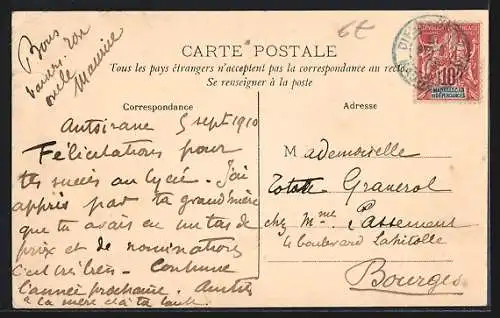 6€
Bons
baisers ton
oncle
Maurice
CARTE POSTALE
Tous les pays étrangers n'acceptent pas la correspondance au recto
Se renseigner à la poste
Correspondance
Adresse
10
Antsirane 5 sept 1910
Félicitations pour
tes succès au lycée. J'ai
appris par ta grand'mère
que tu avais eu un tas de
prix et de nominations
C'est très bien. Continue
l'année prochaine. Amitiés
à ta mère et à ta tante
Mademoiselle
Totote Graverol
chez Mme Passemard
4 boulevard Lahitolle
Bourges